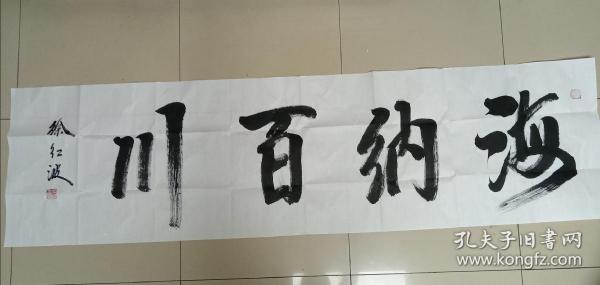 海纳百川
徐红波
孔夫子旧书网
www.kongfz.com